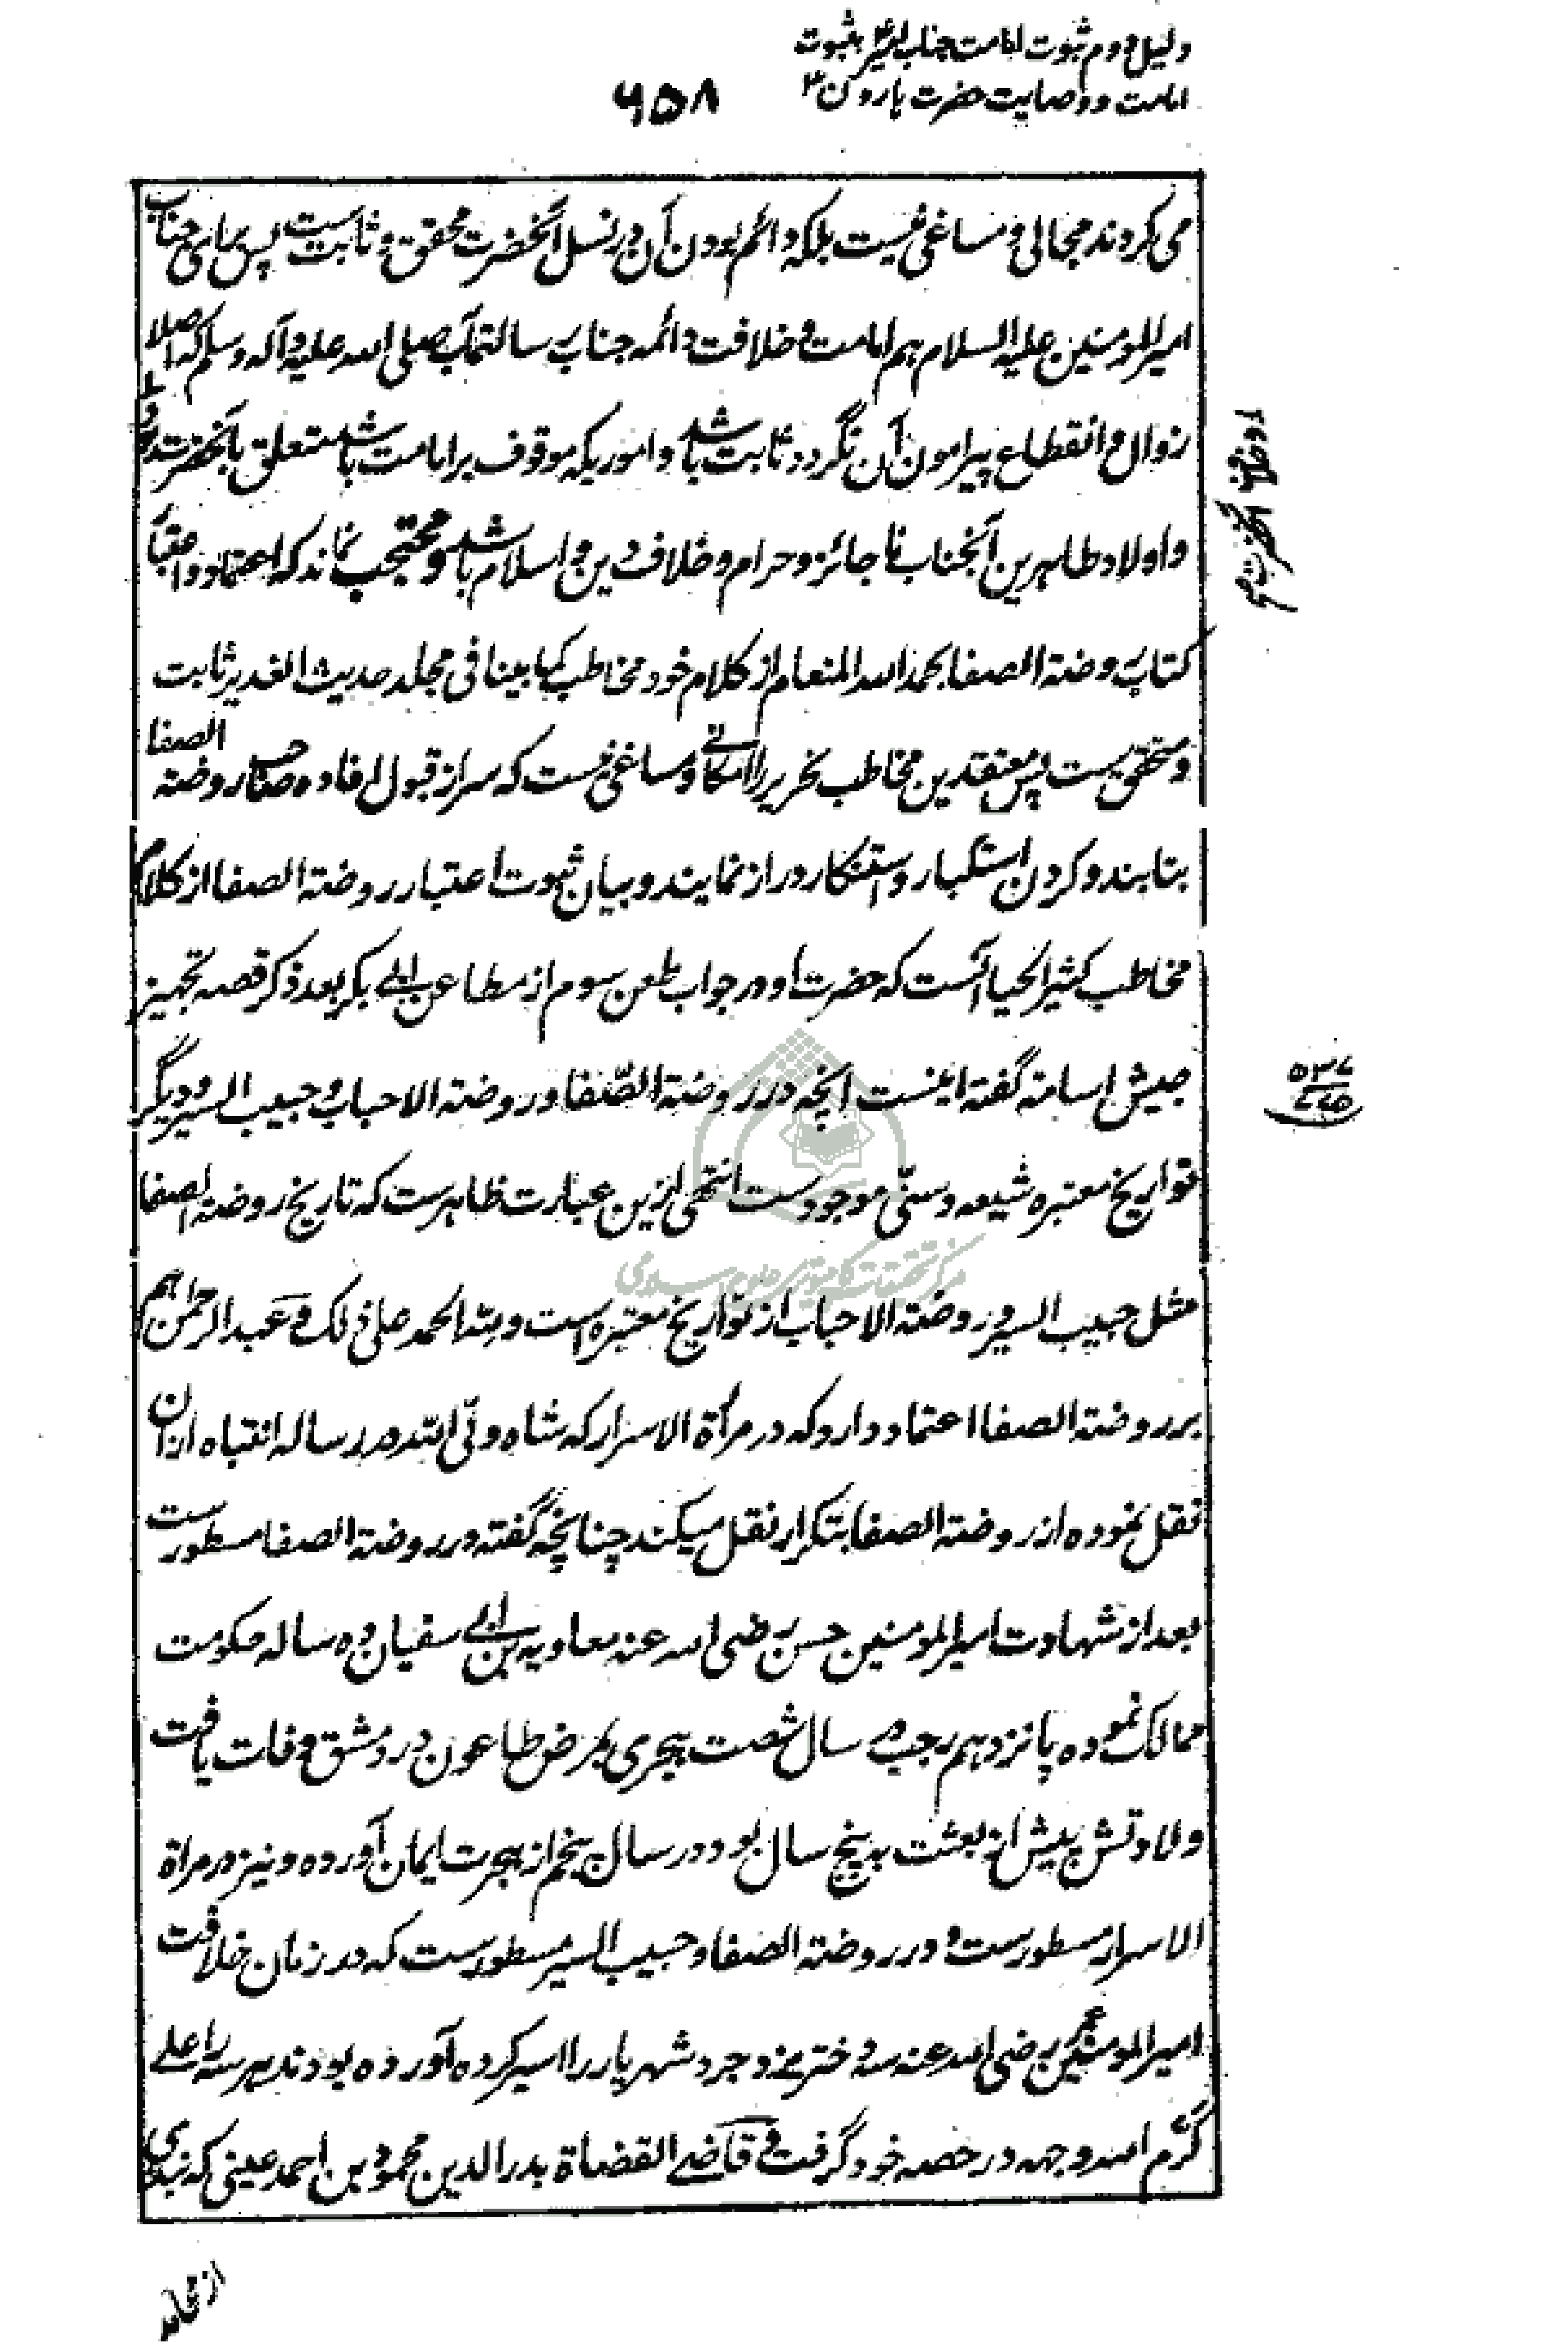 دلیل دوم ثبوت امامت جناب امیرؑ بثبوت
امامت و وصایت حضرت هارونؑ
۶۵۸
می کردند مجالی و مساغی نیست بلکه دائم بودن آن در نسل آنحضرت محقق و ثابت ست پس برای جناب
امیرالمومنین علیه السلام هم امامت و خلافت دائمه جناب رسالتمآب صلی الله علیه و آله وسلم که اصلا
زوال و انقطاع پیرامون آن نگردد ثابت باشد و اموریکه موقوف بر امامت باشد متعلق بآنحضرت
و اولاد طاهرین آنجناب ناجائز و حرام و خلاف دین و اسلام باشد و محتجب نماند که اعتماد و اعتبار
کتاب روضة الصفا بحمد الله المنعام از کلام خود مخاطب کما بینا فی مجلد حدیث الغدیر ثابت
و متحقق ست پس معتقدین مخاطب نحریر را امکانے و مساغی نیست که سر از قبول افاده صاحب روضة الصفا
بتابند و گردن استکبار و استنکار دراز نمایند و بیان ثبوت اعتبار روضة الصفا از کلام
مخاطب کثیر الحیا آنست که حضرت او در جواب طعن سوم از مطاعن ابی بکر بعد ذکر قصه تجهیز
جیش اسامه گفته اینست انچه در روضة الصّفا و روضة الاحباب و حبیب السیر و دیگر
تواریخ معتبره شیعه و سنّی موجودست انتهی ازین عبارت ظاهرست که تاریخ روضة الصفا
مثل حبیب السیر و روضة الاحباب از تواریخ معتبره است و لله الحمد علی ذلک و عبد الرحمن هم
بر روضة الصفا اعتماد دارد که در مرآة الاسرار که شاه ولی الله در رساله انتباه ازان
نقل نموده از روضة الصفا بتکرار نقل میکند چنانچه گفته در روضة الصفا مسطورست
بعد از شهادت امیرالمومنین حسن رضی الله عنه معاویه بن ابی سفیان ده ساله حکومت
ممالک نموده پانزدهم رجب سال شصت هجری بمرض طاعون در دمشق وفات یافت
ولادتش پیش از بعثت به پنج سال بود در سال پنجم از هجرت ایمان آورده و نیز در مرآة
الاسرار مسطورست و در روضة الصفا و حبیب السیر مسطورست که در زمان خلافت
امیرالمومنین عمر رضی الله عنه سه دختر یزدجرد شهریار را اسیر کرده آورده بودند هر سه را علی
کرّم الله وجهه در حصه خود گرفت و قاضی القضاة بدر الدین محمود بن احمد عینی که نبذی
مرکز تحقیقات کامپیوتری علوم اسلامی